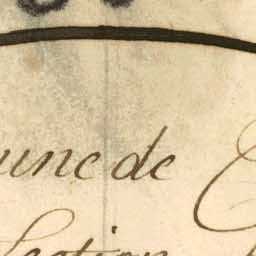 une de C
Section